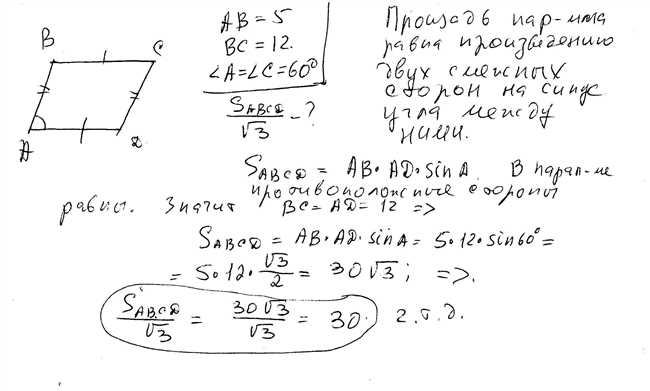 B
C
A
D
AB = 5
BC = 12.
∠A=∠C=60°
S_ABCD/√3 - ?
Площадь пар-мма
равна произведению
двух смежных
сторон на синус
угла между
ними.
S_ABCD = AB·AD·sinA. В парал-ме
противоположные стороны
равны. Значит BC = AD = 12 =>
S_ABCD = AB·AD·sinA = 5·12·sin60° =
= 5·12·√3/2 = 30√3; =>.
S_ABCD/√3 = 30√3/√3 = 30.